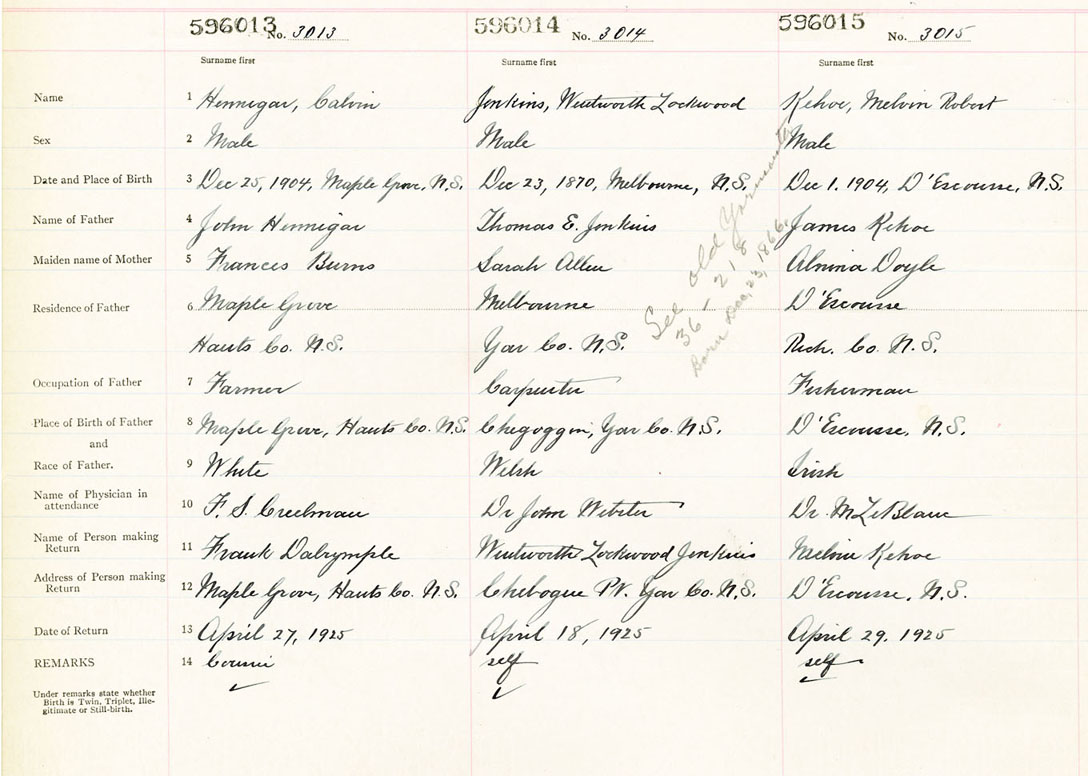 596013 No. 3013 596014 No. 3014 596015 No. 3015
Surname first Surname first Surname first
Name 1 Hennigar, Calvin Jenkins, Wentworth Lockwood Kehoe, Melvin Robert
Sex 2 Male Male Male
Date and Place of Birth 3 Dec 25, 1904, Maple Grove, N.S. Dec 23, 1870, Melbourne, N.S. Dec 1. 1904, D'Escousse, N.S.
Name of Father 4 John Hennigar Thomas E. Jenkins James Kehoe
Maiden name of Mother 5 Frances Burns Sarah Allen Almina Doyle
Residence of Father 6 Maple Grove Melbourne D'Escousse
Hants Co. N.S. Yar Co. N.S. Rich. Co. N.S.
See old Yarmouth
36 - 218
Born Dec, 23, 1866.
Occupation of Father 7 Farmer Carpenter Fisherman
Place of Birth of Father 8 Maple Grove, Hants Co. N.S. Chegoggin, Yar Co. N.S. D'Escousse, N.S.
and
Race of Father. 9 White Welsh Irish
Name of Physician in
attendance 10 F. S. Creelman Dr John Webster Dr. M LeBlanc
Name of Person making
Return 11 Frank Dalrymple Wentworth Lockwood Jenkins Melvin Kehoe
Address of Person making
Return 12 Maple Grove, Hants Co. N.S. Chebogue Pt. Yar Co. N.S. D'Escousse, N.S.
Date of Return 13 April 27, 1925 April 18, 1925 April 29. 1925
REMARKS 14 Cousin self self
Under remarks state whether
Birth is Twin, Triplet, Ille-
gitimate or Still-birth.